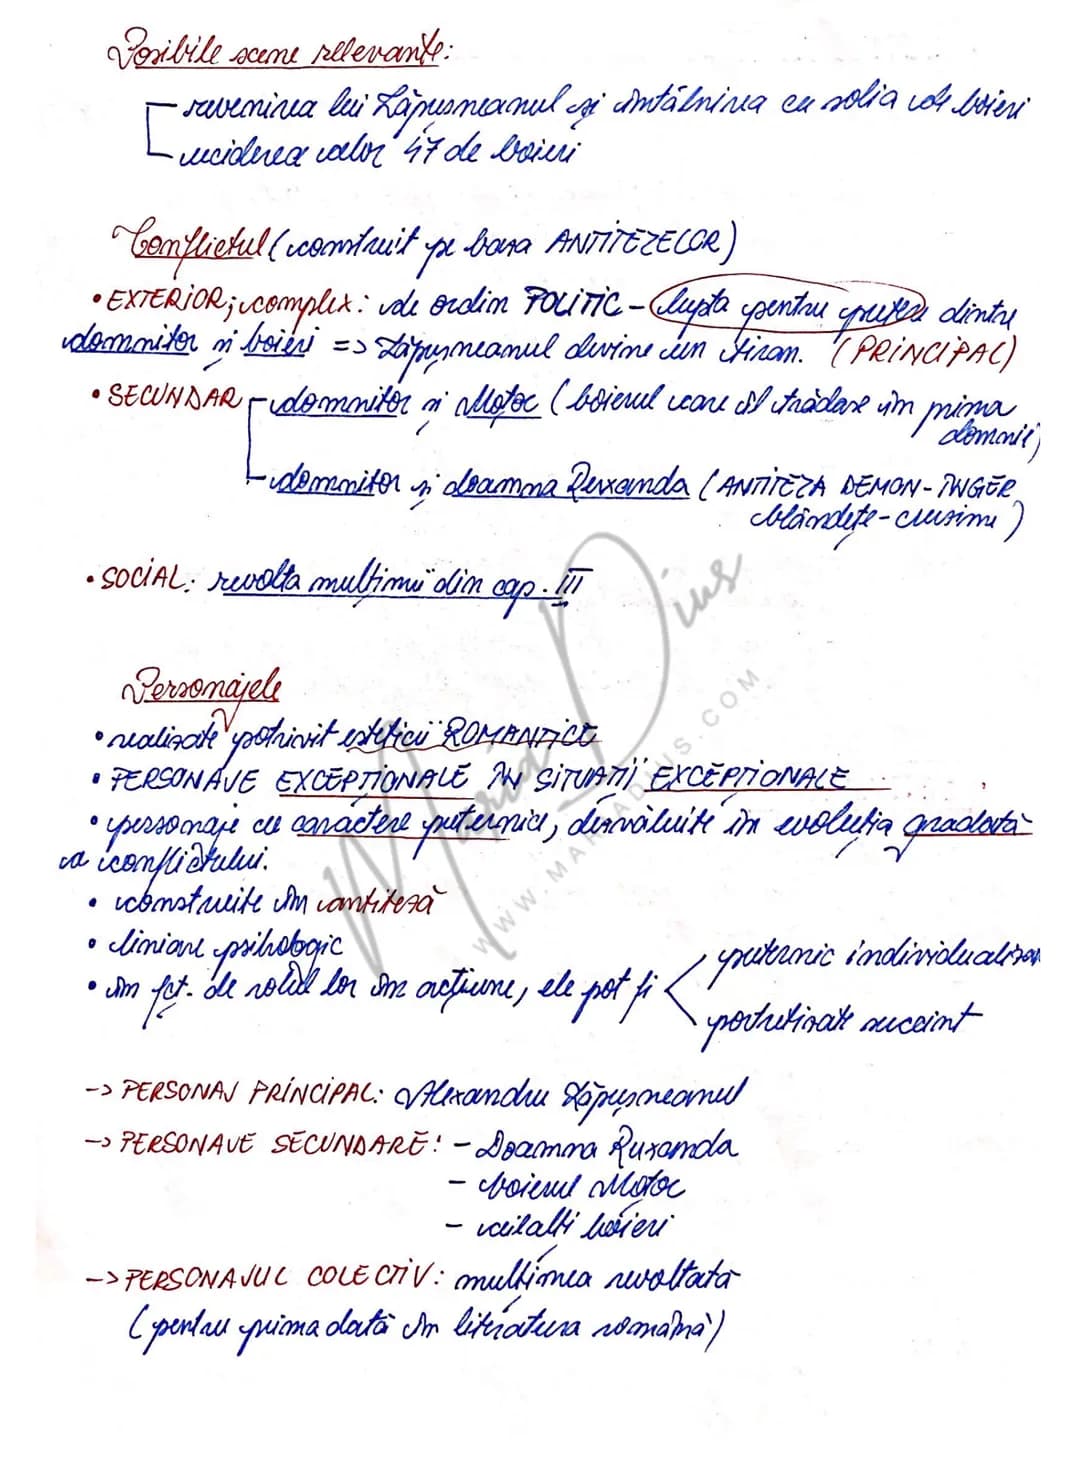 Posibile scene relevante:
- revenirea lui Lăpușneanul și întâlnirea cu solia de boieri
- uciderea celor 47 de boieri
Conflictul (construit pe baza ANTITEZELOR)
• EXTERIOR; complex: de ordin POLITIC - lupta pentru putere dintre
domnitor și boieri => Lăpușneanul devine un tiran. (PRINCIPAL)
• SECUNDAR - domnitor și Moțoc (boierul care îl trădase în prima
domnie)
- domnitor și doamna Ruxanda (ANTITEZA DEMON-ÎNGER
blândețe-cruzime)
• SOCIAL: revolta mulțimii din cap. III
Personajele
• realizate potrivit esteticii ROMANTICE
• PERSONAJE EXCEPȚIONALE ÎN SITUAȚII EXCEPȚIONALE
• personaje cu caractere puternice, dezvăluite în evoluția gradată
a conflictului.
• construite în antiteză
• liniare psihologic
• în fct. de rolul lor în acțiune, ele pot fi < puternic individualizate
portretizate succint
-> PERSONAJ PRINCIPAL: Alexandru Lăpușneanul
-> PERSONAJE SECUNDARE: - Doamna Ruxanda
- boierul Moțoc
- ceilalți boieri
-> PERSONAJUL COLECTIV: mulțimea revoltată
(pentru prima dată în literatura română)
Maria Dius
WWW.MARIADIUS.COM